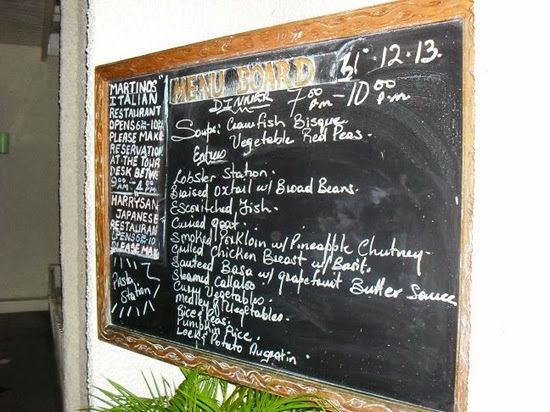 MARTINOS'
ITALIAN
RESTAURANT
OPENS 6:30-10:00
PLEASE MAKE
RESERVATION
AT THE TOUR
DESK BETWE
9:00 - 4:00
AM - PM
HAPPYSAN
JAPANESE
RESTAURAN
OPENS 6:30-10
PLEASE MAK
Pasta
Station
MENU BOARD 31·12·13.
DINNER 7:00 P.M - 10:00 P.M.
Soups: Crawfish Bisque
Vegetable Red Peas.
Entrees
Lobster Station.
Braised Oxtail w/ Broad Beans.
Escovitched Fish.
Curried goat.
Smoked Porkloin w/ Pineapple Chutney
Grilled Chicken Breast w/ Basil.
Sauteed Basa w/ grapefruit Butter Sauce
Steamed Callaloo
Curry Vegetables.
Medley of Vegetables.
Rice & Peas.
Pumpkin Rice.
Leek & Potato Augratin.